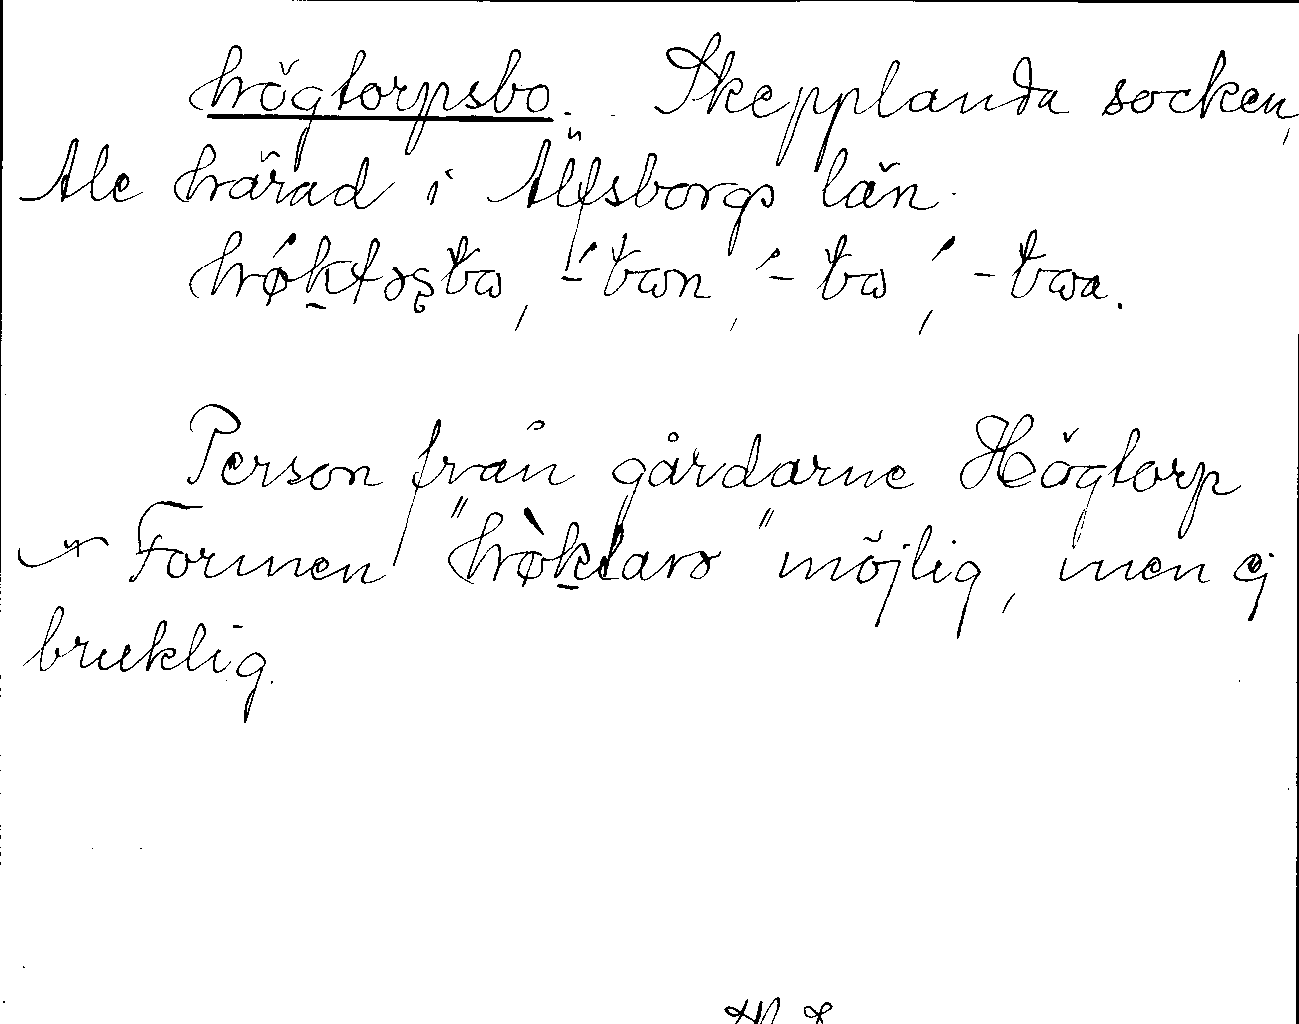 högtorpsbo. Skepplanda socken,
Ale härad i Älfsborgs län.
Person från gårdarne Högtorp
Formen "høktarə" möjlig, men ej
bruklig.